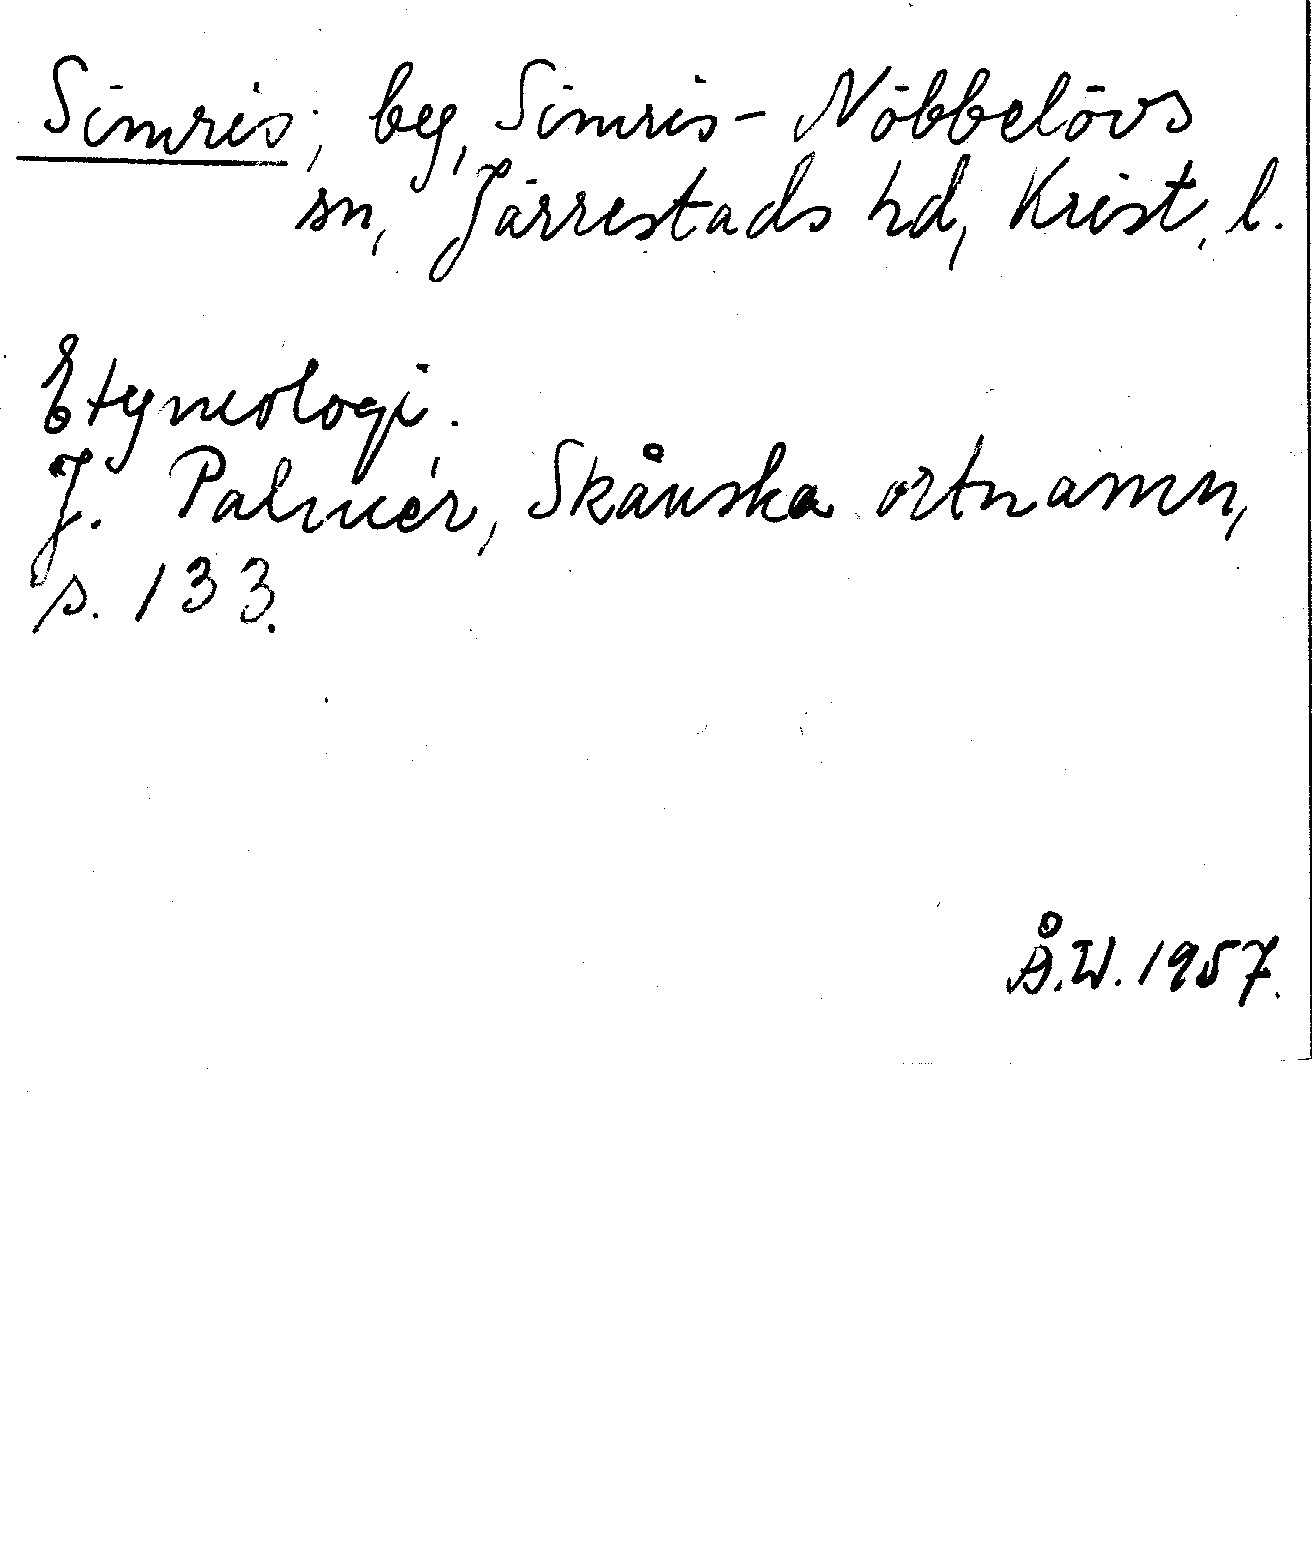 Simris; beg, Simris-Nöbbelövs
sn, Järrestads hd, Krist. l.
Etymologi.
J. Palmér, Skånska ortnamn,
s. 133.
Å.W. 1957.